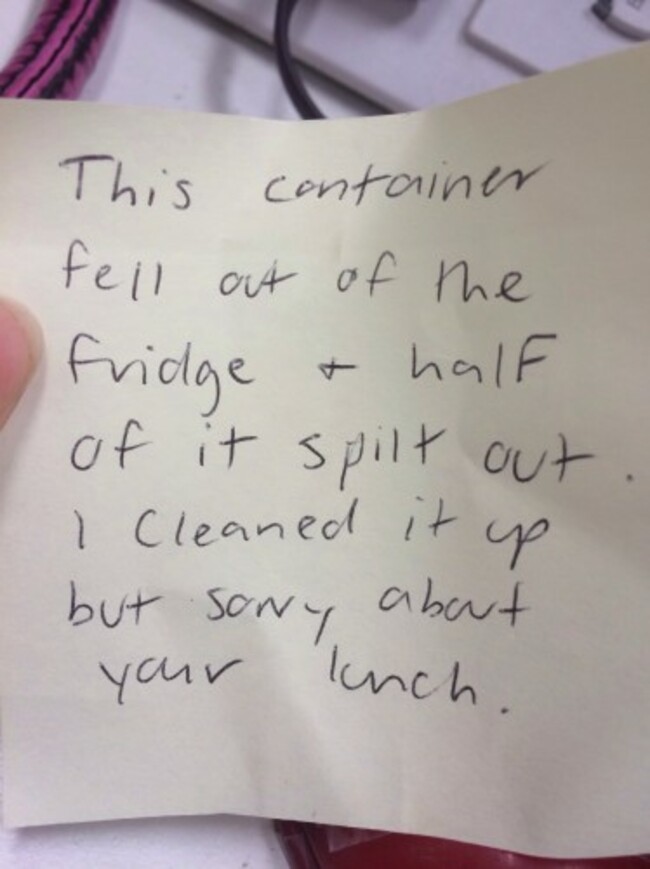 This container
fell out of the
fridge + half
of it spilt out.
I cleaned it up
but sorry about
your lunch.